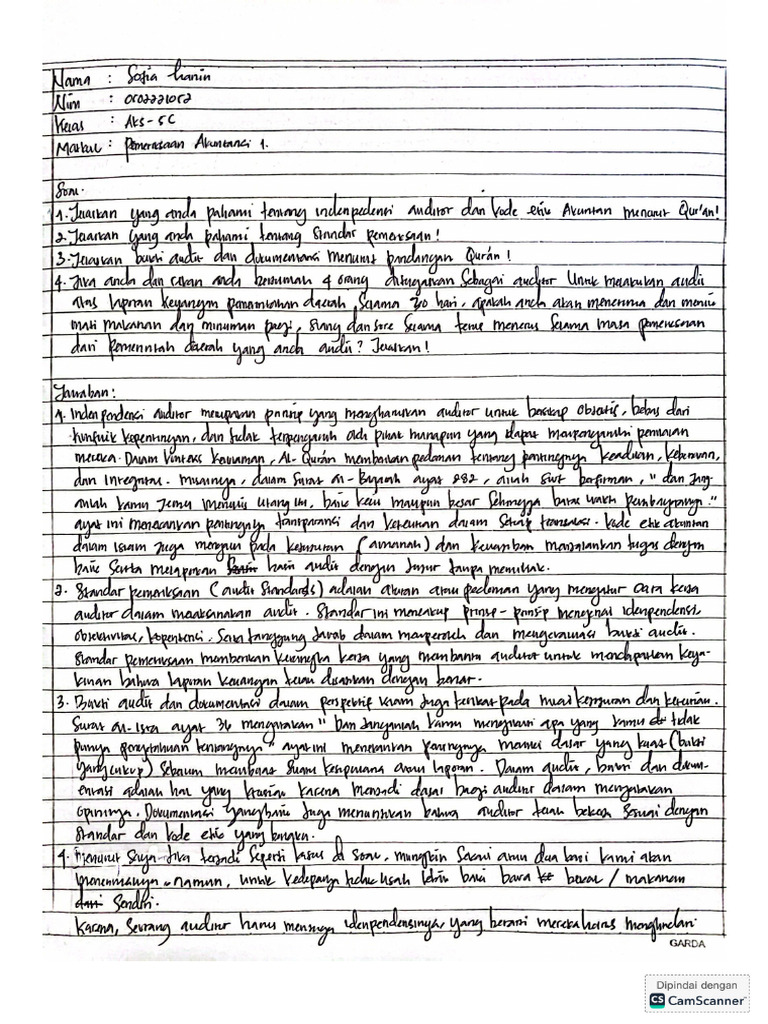 Nama : Sofia Hanin
Nim : 0502221052
Kelas : AKS - 5C
Matkul : Pemeriksaan Akuntansi 1.
Soal.
1. Jelaskan yang anda pahami tentang indenpedensi auditor dan kode etik Akuntan menurut Qur'an!
2. Jelaskan yang anda pahami tentang standar pemeriksaan!
3. Jelaskan bukti audit dan dokumentasi menurut pandangan Qur'an!
4. Jika anda dan rekan anda berjumlah 4 orang ditugaskan sebagai auditor untuk melakukan audit
atas laporan keuangan pemerintahan daerah, selama 30 hari, apakah anda akan menerima dan menik
mati makanan dan minuman pagi, siang dan sore selama terus menerus selama masa pemeriksaan
dari pemerintah daerah yang anda audit? Jelaskan!
Jawaban:
1. Independensi auditor merupakan prinsip yang mengharuskan auditor untuk bersikap objektif, bebas dari
konflik kepentingan, dan tidak terpengaruh oleh pihak manapun yang dapat mempengaruhi penilaian
mereka. Dalam konteks keislaman, Al-Qur'an memberikan pedoman tentang pentingnya keadilan, kebenaran,
dan integritas. Misalnya, dalam surat al-Baqarah ayat 282, allah swt berfirman, " dan Jang-
anlah kamu jemu menulis utang itu, baik kecil maupun besar sehingga batas waktu pembayarannya."
ayat ini menekankan pentingnya transparansi dan kejelasan dalam setiap transaksi. Kode etik akuntan
dalam islam juga mengacu pada kejujuran (amanah) dan kewajiban menjalankan tugas dengan
baik serta melaporkan hasil audit dengan jujur tanpa memihak.
2. Standar pemeriksaan (audit standards) adalah aturan atau pedoman yang mengatur cara kerja
auditor dalam melaksanakan audit. Standar ini mencakup prinsip - prinsip mengenai idenpendensi,
objektivitas, kopentensi, serta tanggung Jawab dalam memperoleh dan mengevaluasi bukti audit.
Standar pemeriksaan memberikan kerangka kerja yang membantu auditor untuk mendapatkan keya-
kinan bahwa laporan keuangan telah disajikan dengan benar.
3. Bukti audit dan dokumentasi dalam perspektif islam juga terikat pada nilai kejujuran dan ketelitian.
Surat al-Isra ayat 36 mengatakan " Dan Janganlah kamu mengikuti apa yang kamu tidak
punya pengetahuan tentangnya" ayat ini menekankan pentingnya memiliki dasar yang kuat (bukti
yang cukup) sebelum membuat suatu kesimpulan atau laporan. Dalam audit, bukti dan dokum-
entasi adalah hal yang krusial karena menjadi dasar bagi auditor dalam menyatakan
opininya. Dokumentasi yang baik juga menunjukkan bahwa auditor telah bekerja sesuai dengan
standar dan kode etik yang berlaku.
4. Menurut saya jika terjadi seperti kasus di soal, mungkin sekali atau dua kali kami akan
menerimanya. namun, untuk kedepanya tidak usah lebih baik bawa bekal / makanan
sendiri.
Karena, seorang auditor harus menjaga idenpendensinya, yang berarti mereka harus menghindari
GARDA
Dipindai dengan
CS CamScanner